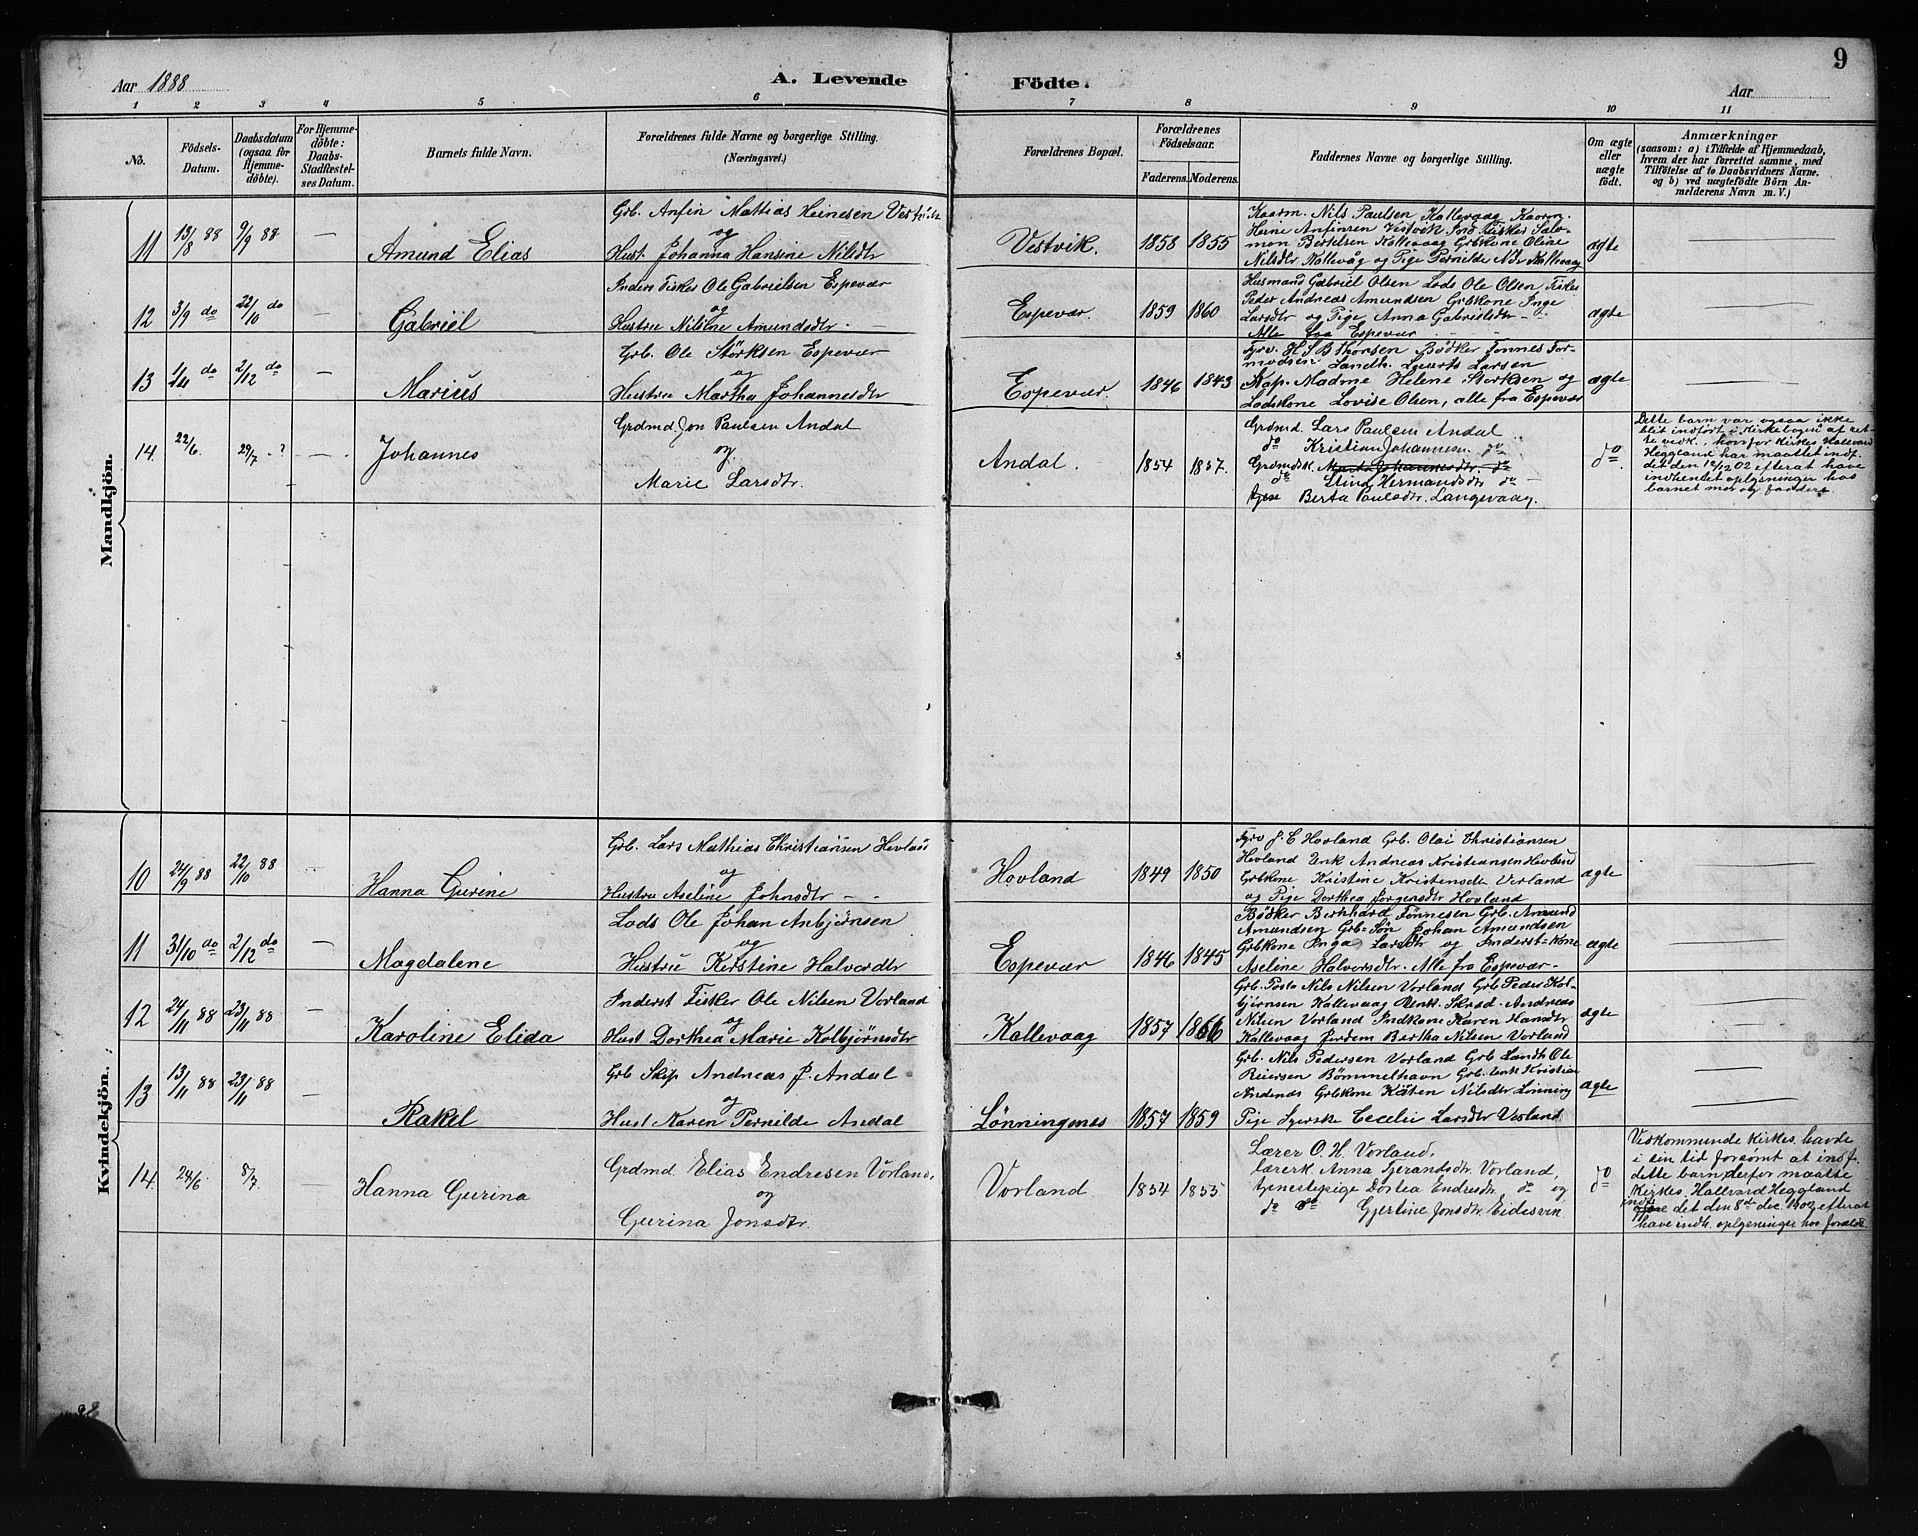 9
Aar 1888
A. Levende
Födte.
Aar
1 2 3 4 5 6 7 8 9 10 11
No.
Födsels-
Datum.
Daabsdatum
(ogsaa for
Hjemme-
döbte).
For Hjemme-
döbte:
Daabs-
Stadfestel-
ses Datum.
Barnets fulde Navn.
Forældrenes fulde Navne og borgerlige Stilling.
(Næringsvei.)
Forældrenes Bopæl.
Forældrenes
Födselsaar.
Faderens. Moderens.
Faddernes Navne og borgerlige Stilling.
Om ægte
eller
uægte
födt.
Anmærkninger
(saasom: a) i Tilfælde af Hjemmedaab,
hvem der har forrettet samme, med
Tilföielse af to Daabsvidners Navne.
og b) ved uægtefödte Börn An-
melderens Navn m. V.)
Mandkjön.
11 13/8 88 9/9 88 — Amund Elias
Grb. Anfin Mathias Heinesen Vestvik
og
Hust. Johanna Hansine Nilsdtr
Vestvik. 1858 1855
Kaarm. Nils Paulsen Kallevaag Kaarm.
Heine Anfinsen Vestvik Ind Fisker Salo-
mon Bertelsen Kallevaag Grbkone Oline
Nilsdtr Kallevåg og Pige Pernilde Kallevaag
ægte
12 3/9 do 22/10 do — Gabriel
Inders Fisker Ole Gabrielsen Espevær
og
Hustru Nilsine Amundsdtr. —
Espevær. 1859 1860
Husmand Gabriel Olsen Lods Ole Olsen Fisker
Peder Andreas Amundsen Grbkone Inge
Larsdtr og Pige Anna Gabrielsdtr
Alle fra Espevær
ægte
13 1/11 do 2/12 do — Marius
Grb. Ole Størksen Espevær
og
Hustru Martha Johannesdtr
Espevær. 1846 1843
Fyrv. H S B Thorsen Bødker Tønnes Tor-
modsen Landh. Lauritz Larsen
Kap. Madme Helene Størksen og
Lodskone Lovise Olsen, alle fra Espevær
ægte
14. 22/6. 29/7 ? — Johannes
Grdmd. Jon Paulsen Andal
og.
Marie Larsdtr.
Andal. 1854 1857.
Grdmd. Lars Paulsen Andal
do Kristian Johannesen do
Grdmdsk. Johannesdtr. do
do Stina Hermandsdtr do —
Berta Paulsdtr. Langevaag.
do
Dette barn var ogsaa ikke
blit indført i Kirkebogen af ret-
te vedk., hvorfor Kirkes. Hallvard
Heggland har maattet indf.
det den 12/12 02 efterat have
indhentet oplysninger hos
barnet mor og faddere.
Kvindekjön.
10 24/9 88 22/10 88 — Hanna Gurine
Grb. Lars Mathias Christiansen Hovland
og
Hustru Aseline Johnsdtr — —
Hovland 1849 1850
Fyrv J. C Hovland Grb. Olai Christiansen
Hovland Enk Andreas Kristiansen Hovland
Grbkone Kristine Kristensdtr Vorland
og Pige Dorthea Jørgensdtr Hovland
ægte
11 31/10 do 2/12 do — Magdalene
Lods Ole Johan Anbjørnsen
og
Hustru Kerstine Halvordtr
Espevær 1846 1845
Bødker Bernhard Tönnesen Grb. Amund
Amundsen Grb. Søn Johan Amundsen
Grbkone Inga Larsdtr og Inderst-kone
Aseline Halvorsdtr. Alle fra Espevær —
ægte
12 24/11 88 23/11 88 Karoline Elida
Inderst Fisker Ole Nilsen Vorland
og
Hust Dorthea Marie Kolbjørnsdtr
Kallevaag 1857 1866
Grb. Nils Nilsen Vorland Grb Peder Kol-
bjørnsen Kallevaag Skrad. Andreas
Nilsen Vorland Indkone Karen Hansdtr
Kallevaag Jordem Bertha Nilsen Vorland
ægte
13 13/11 88 23/11 88 — Rakel
Grb Skip Andreas J. Andal
og
Hust Karen Pernilde Andal
Lønningnes 1857 1859
Grb. Nils Pedersen Vorland Grb Landh Ole
Reiersen Bømmelhavn Grb. Enk Kristian
Andenæs Grbkone Nilsdtr Lønning
Pige Cecelie Larsdtr Vorland
ægte
14. 24/6. 8/7. Hanna Gurina
Grdmd Elias Endresen Vorland,
og
Gurina Jonsdtr.
Vorland 1854 1855
Lærer O. H. Vorland,
lærerk. Anna Tjerandsdtr. Vorland,
tjenestepige Dortea Endresdtr. do og
do do Gjertine Jonsdtr. Eidesvik
do
Vedkommende kirkes. havde
i sin tid forsømt at indf.
dette barn, derfor maatte
Kirkes. Hallvard Heggland
indføre det den 8de dec. 1902 efterat
have indh. oplysninger hos foræld.